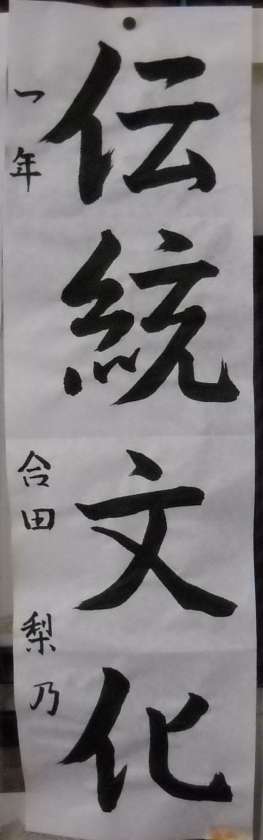 伝統文化
一年 合田 梨乃